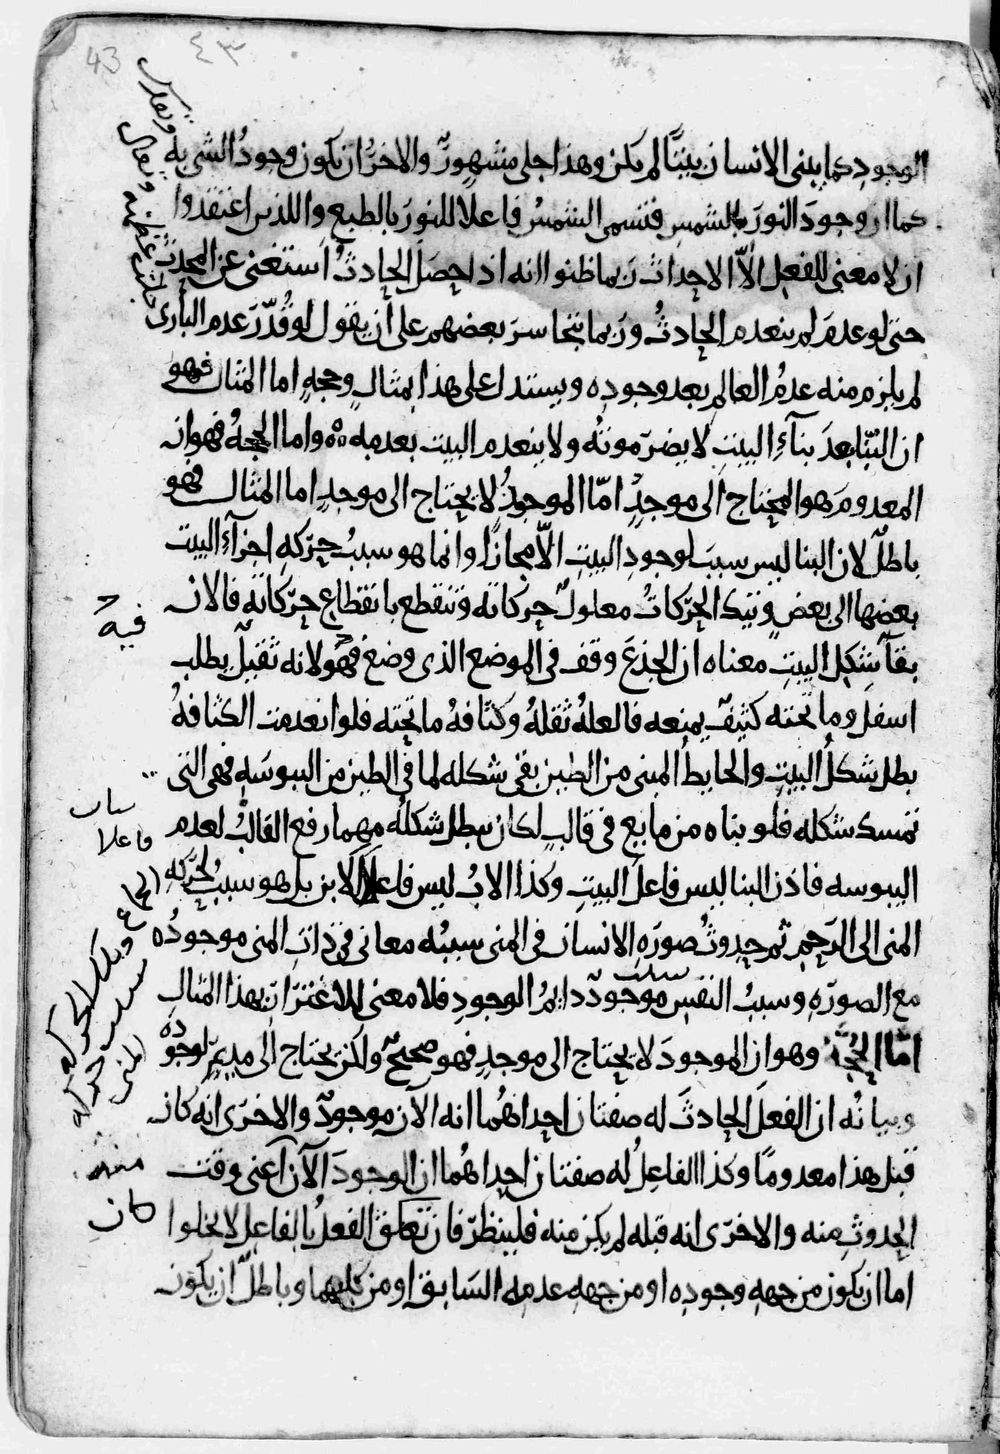 43 ٤٣
الوجود كما يبنى الانسان بيتا لم يكن وهذا جلى مشهور والاخر ان يكون وجود الشى به
كما ان وجود النور بالشمس فتسمى الشمس فاعلا للنور بالطبع واللذين اعتقدوا
ان لا معنى للفعل الا الاحداث ربما ظنوا انه اذا حصل الحادث استغنى عن المحدث
حتى لو عدم لم ينعدم الحادث وربما يتجاسر بعضهم على ان يقول لو قدر عدم البارى
لم يلزم منه عدم العالم بعد وجوده ويستدل على هذا بمثال وحجه اما المثال فهو
ان البنا بعد بناء البيت لا يضر موته ولا ينعدم البيت بعدمه واما الحجه فهو انه
المعدوم هو المحتاج الى موجد اما الموجود لا يحتاج الى موجد اما المثال فهو
باطل لان البنا ليس سبب لوجود البيت الا مجازا وانما هو سبب حركه اجزاء البيت
بعضها الى بعض وتيك الحركات معلول حركاته وتنقطع بانقطاع حركاته فالان
بقآ شكل البيت معناه ان الجذع وقف فى الموضع الذى وضع فهو لانه ثقيل يطلب
فيه
اسفل وما تحته كثيف يمنعه فالعله ثقله وكثافه ما تحته فلو انعدمت الكثافه
بطل شكل البيت والحايط المبنى من الطين بقى شكله لما فى الطين من اليبوسه فهى التى
تمسك شكله فلو بناه من مايع فى قالب لكان يبطل شكله مهما رفع القالب لعدم
اليبوسه فاذن البنا ليس فاعل البيت وكذا الاب ليس فاعل الابن بل هو سبب لحركه
فاعلا
المنى الى الرحم ثم حدوث صوره الانسان فى المنى سببه معانى فى ذات المنى موجوده
مع الصوره وسبب النفس سبب موجود دايم الوجود فلا معنى للاغترار بهذا المثال
اما الحجه وهو ان الموجود لا يحتاج الى موجد فهو صحيح ولكن يحتاج الى مديم لوجوده
وبيانه ان الفعل الحادث له صفتان احداهما انه الان موجود والاخرى انه كان
قبل هذا معدوما وكذا الفاعل له صفتان احداهما ان الوجود الآن اعنى وقت
الحدوث منه والاخرى انه قبله لم يكن منه فلينظر فان تعلق الفعل بالفاعل لا يخلوا
كان
اما ان يكون من جهه وجوده او من جهه عدمه السابق او من كليهما وباطل ان يكون